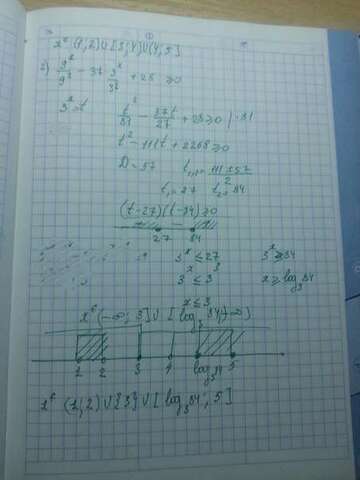 x ∈ (1,2) ∪ [3;4) ∪ (4,5]
2) 9^x/9^2 - 37 3^x/3^3 + 28 ≥ 0
3^x = t
t^2/81 - 37t/27 + 28 ≥ 0 | ·81
t^2 - 111t + 2268 ≥ 0
D = 57 t_{1,2} = (111 ± 57)/2
t_1 = 27 t_2 = 84
(t-27)(t-84) ≥ 0
27 84
3^x ≤ 27 3^x ≥ 84
3^x ≤ 3^3 x ≥ log_3 84
x ≤ 3
x ∈ (-∞; 3] ∪ [log_3 84; +∞)
1 2 3 4 log_3 84 5
x ∈ (1,2) ∪ {3} ∪ [log_3 84; 5]